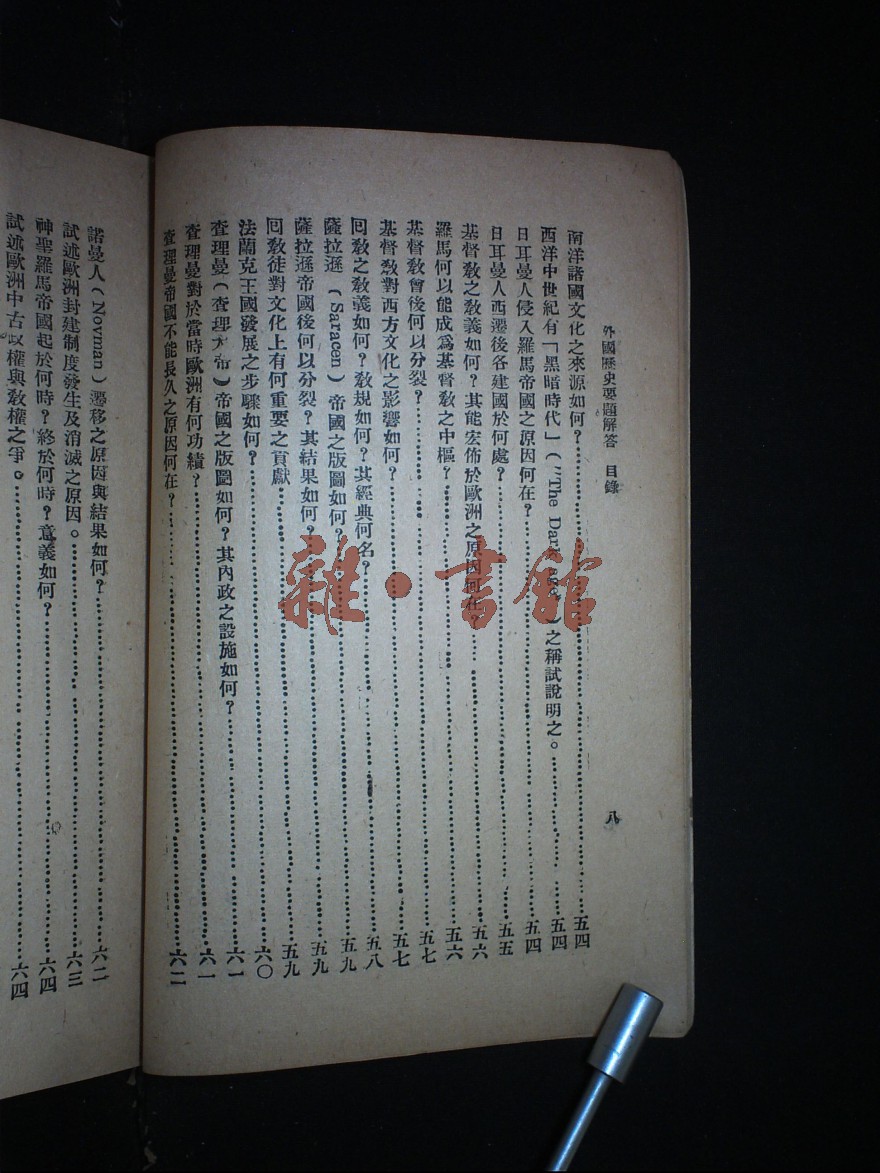 外國歷史要題解答 目錄 八
南洋諸國文化之來源如何？五四
西洋中世紀有「黑暗時代」（"The Dark age"）之稱試說明之。五四
日耳曼人侵入羅馬帝國之原因何在？五四
日耳曼人西遷後各建國於何處？五五
基督敎之敎義如何？其能宏佈於歐洲之原因何在？五六
羅馬何以能成爲基督敎之中樞？五六
基督敎會後何以分裂？五七
基督敎對西方文化之影響如何？五七
回敎之敎義如何？敎規如何？其經典何名？五八
薩拉遜（Saracen）帝國之版圖如何？五九
薩拉遜帝國後何以分裂？其結果如何？五九
回敎徒對文化上有何重要之貢獻五九
法蘭克王國發展之步驟如何？六〇
查理曼（查理大帝）帝國之版圖如何？其內政之設施如何？六一
查理曼對於當時歐洲有何功績？六一
查理曼帝國不能長久之原因何在？六二
諾曼人（Novman）遷移之原因與結果如何？六二
試述歐洲封建制度發生及消滅之原因。六三
神聖羅馬帝國起於何時？終於何時？意義如何？六四
試述歐洲中古政權與敎權之爭。六四
雜·書館